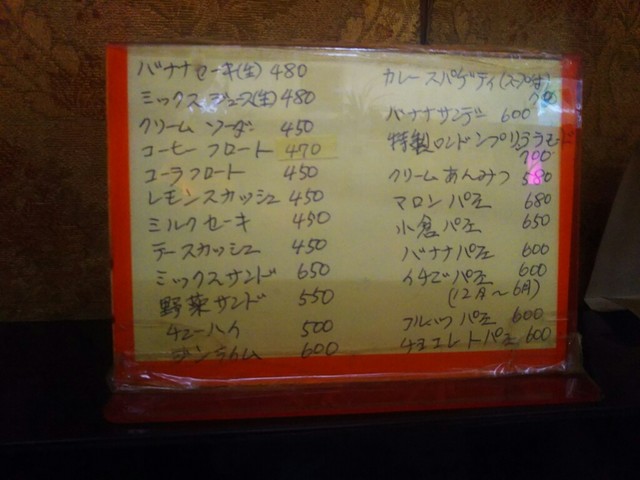 バナナセーキ(生) 480
ミックスジュース(生) 480
クリームソーダ 450
コーヒーフロート 470
コーラフロート 450
レモンスカッシュ 450
ミルクセーキ 450
テースカッシュ 450
ミックスサンド 650
野菜サンド 550
チューハイ 500
ジンライム 600
カレースパゲティ(スープ付)
バナナサンデー 600
特製ロンドンプリンアラモード
700
クリームあんみつ 580
マロンパフェ 680
小倉パフェ 650
バナナパフェ 600
イチゴパフェ 600
(12月〜6月)
フルーツパフェ 600
チョコレートパフェ 600